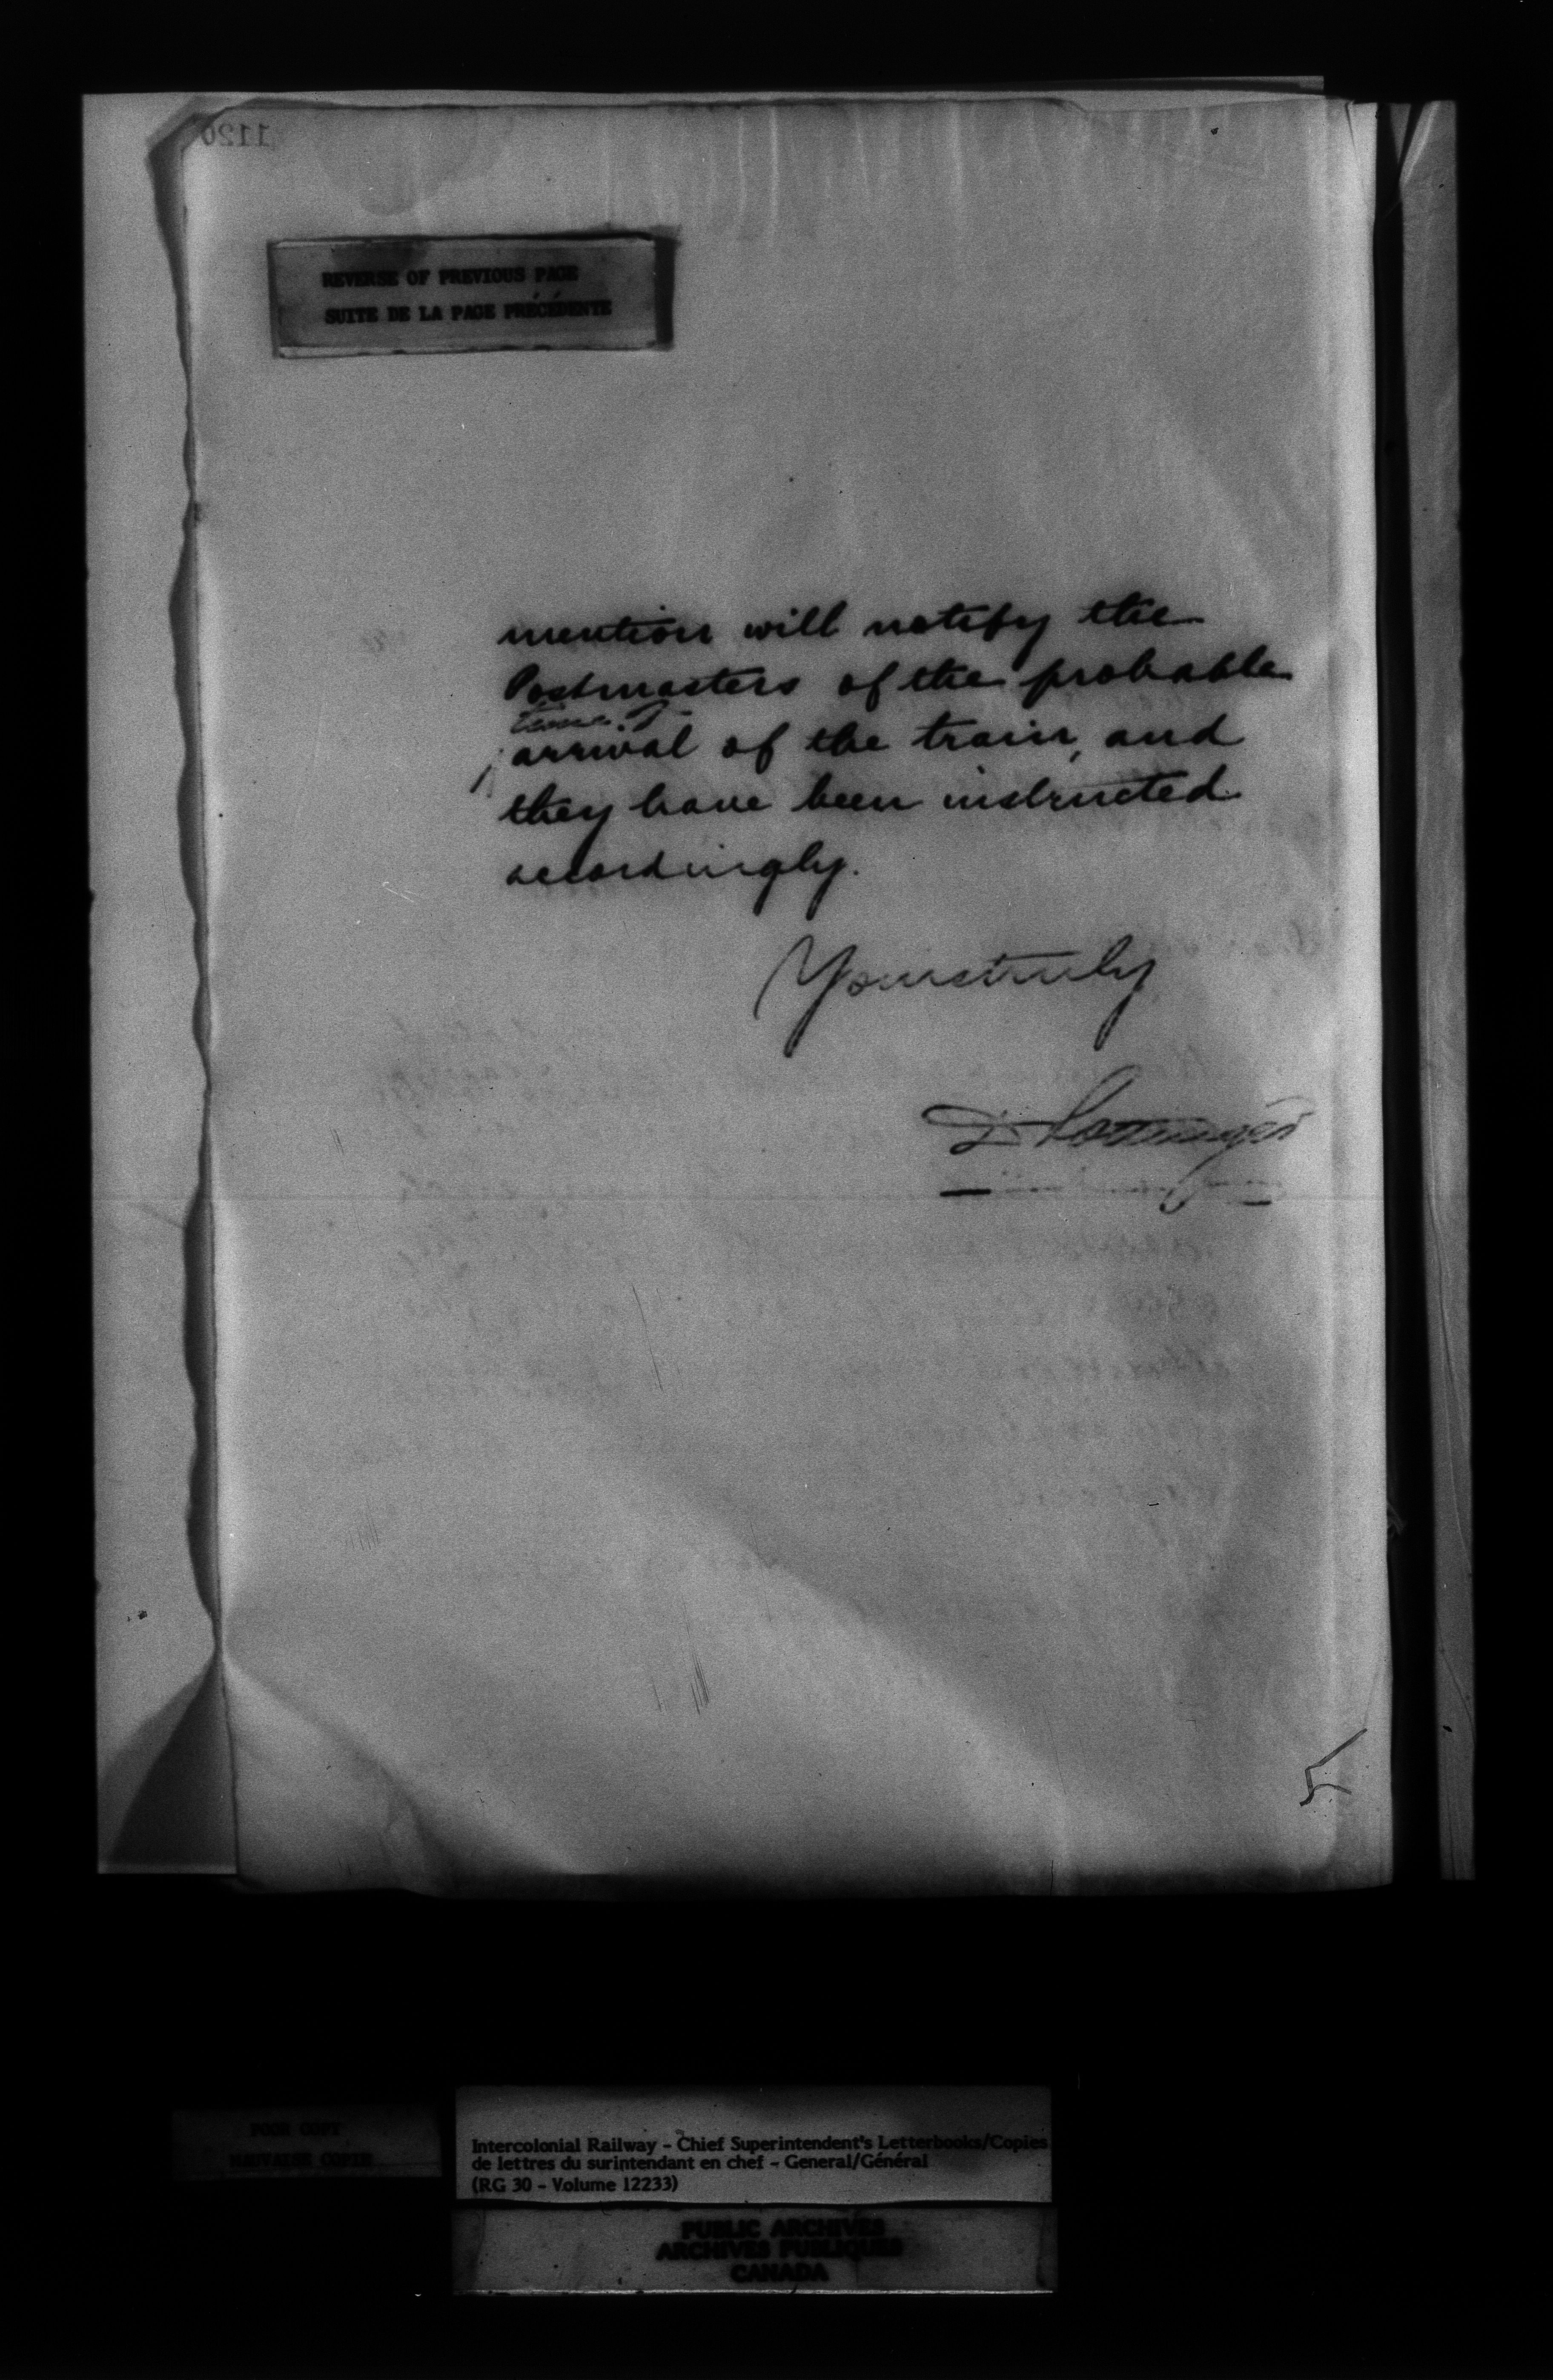 1120
REVERSE OF PREVIOUS PAGE
SUITE DE LA PAGE PRÉCÉDENTE
mention will notify the
Postmasters of the probable
time of
arrival of the train, and
they have been instructed
accordingly.
Yours truly
D Pottinger
5
POOR COPY
MAUVAISE COPIE
Intercolonial Railway - Chief Superintendent's Letterbooks/Copies
de lettres du surintendant en chef - General/Général
(RG 30 - Volume 12233)
PUBLIC ARCHIVES
ARCHIVES PUBLIQUES
CANADA